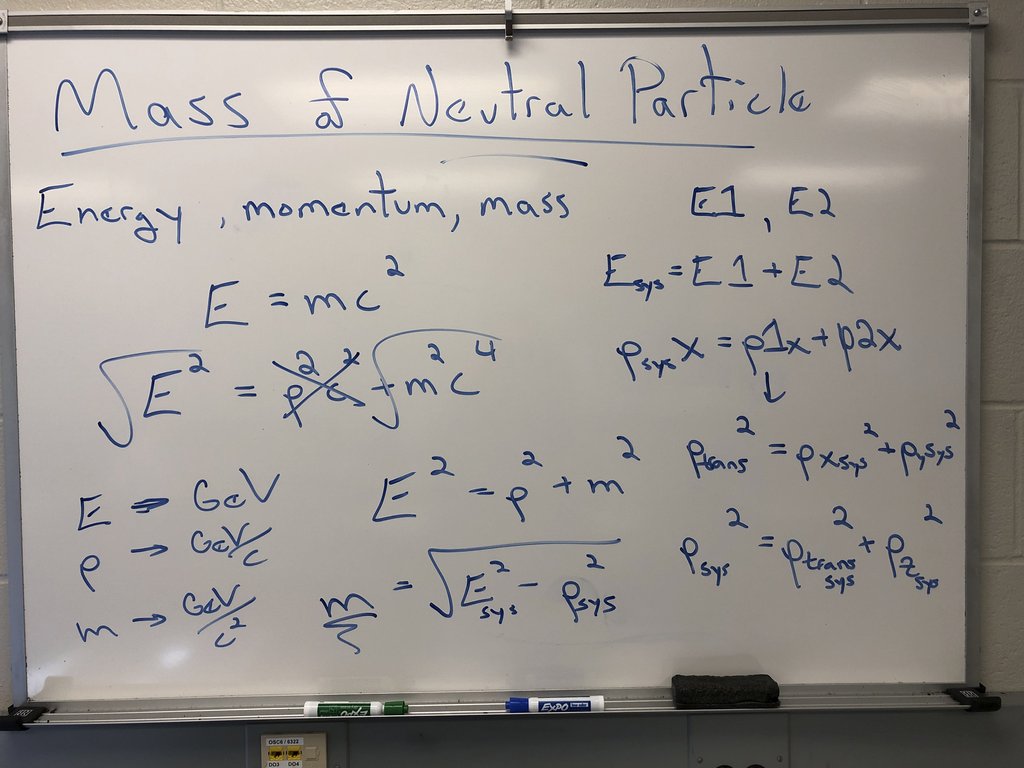 Mass of Neutral Particle
Energy, momentum, mass
E = mc²
√E² = p²c² + √m²c⁴
E² = p² + m²
E → GeV
p → GeV/c
m → GeV/c²
m = √E_sys² - p_sys²
E1, E2
E_sys = E1 + E2
p_sys x = p1x + p2x
↓
p_trans² = p_x sys² + p_y sys²
p_sys² = p_trans sys² + p_z sys²
EXPO
EXPO
OSC6 / 6322
DD3 DD4